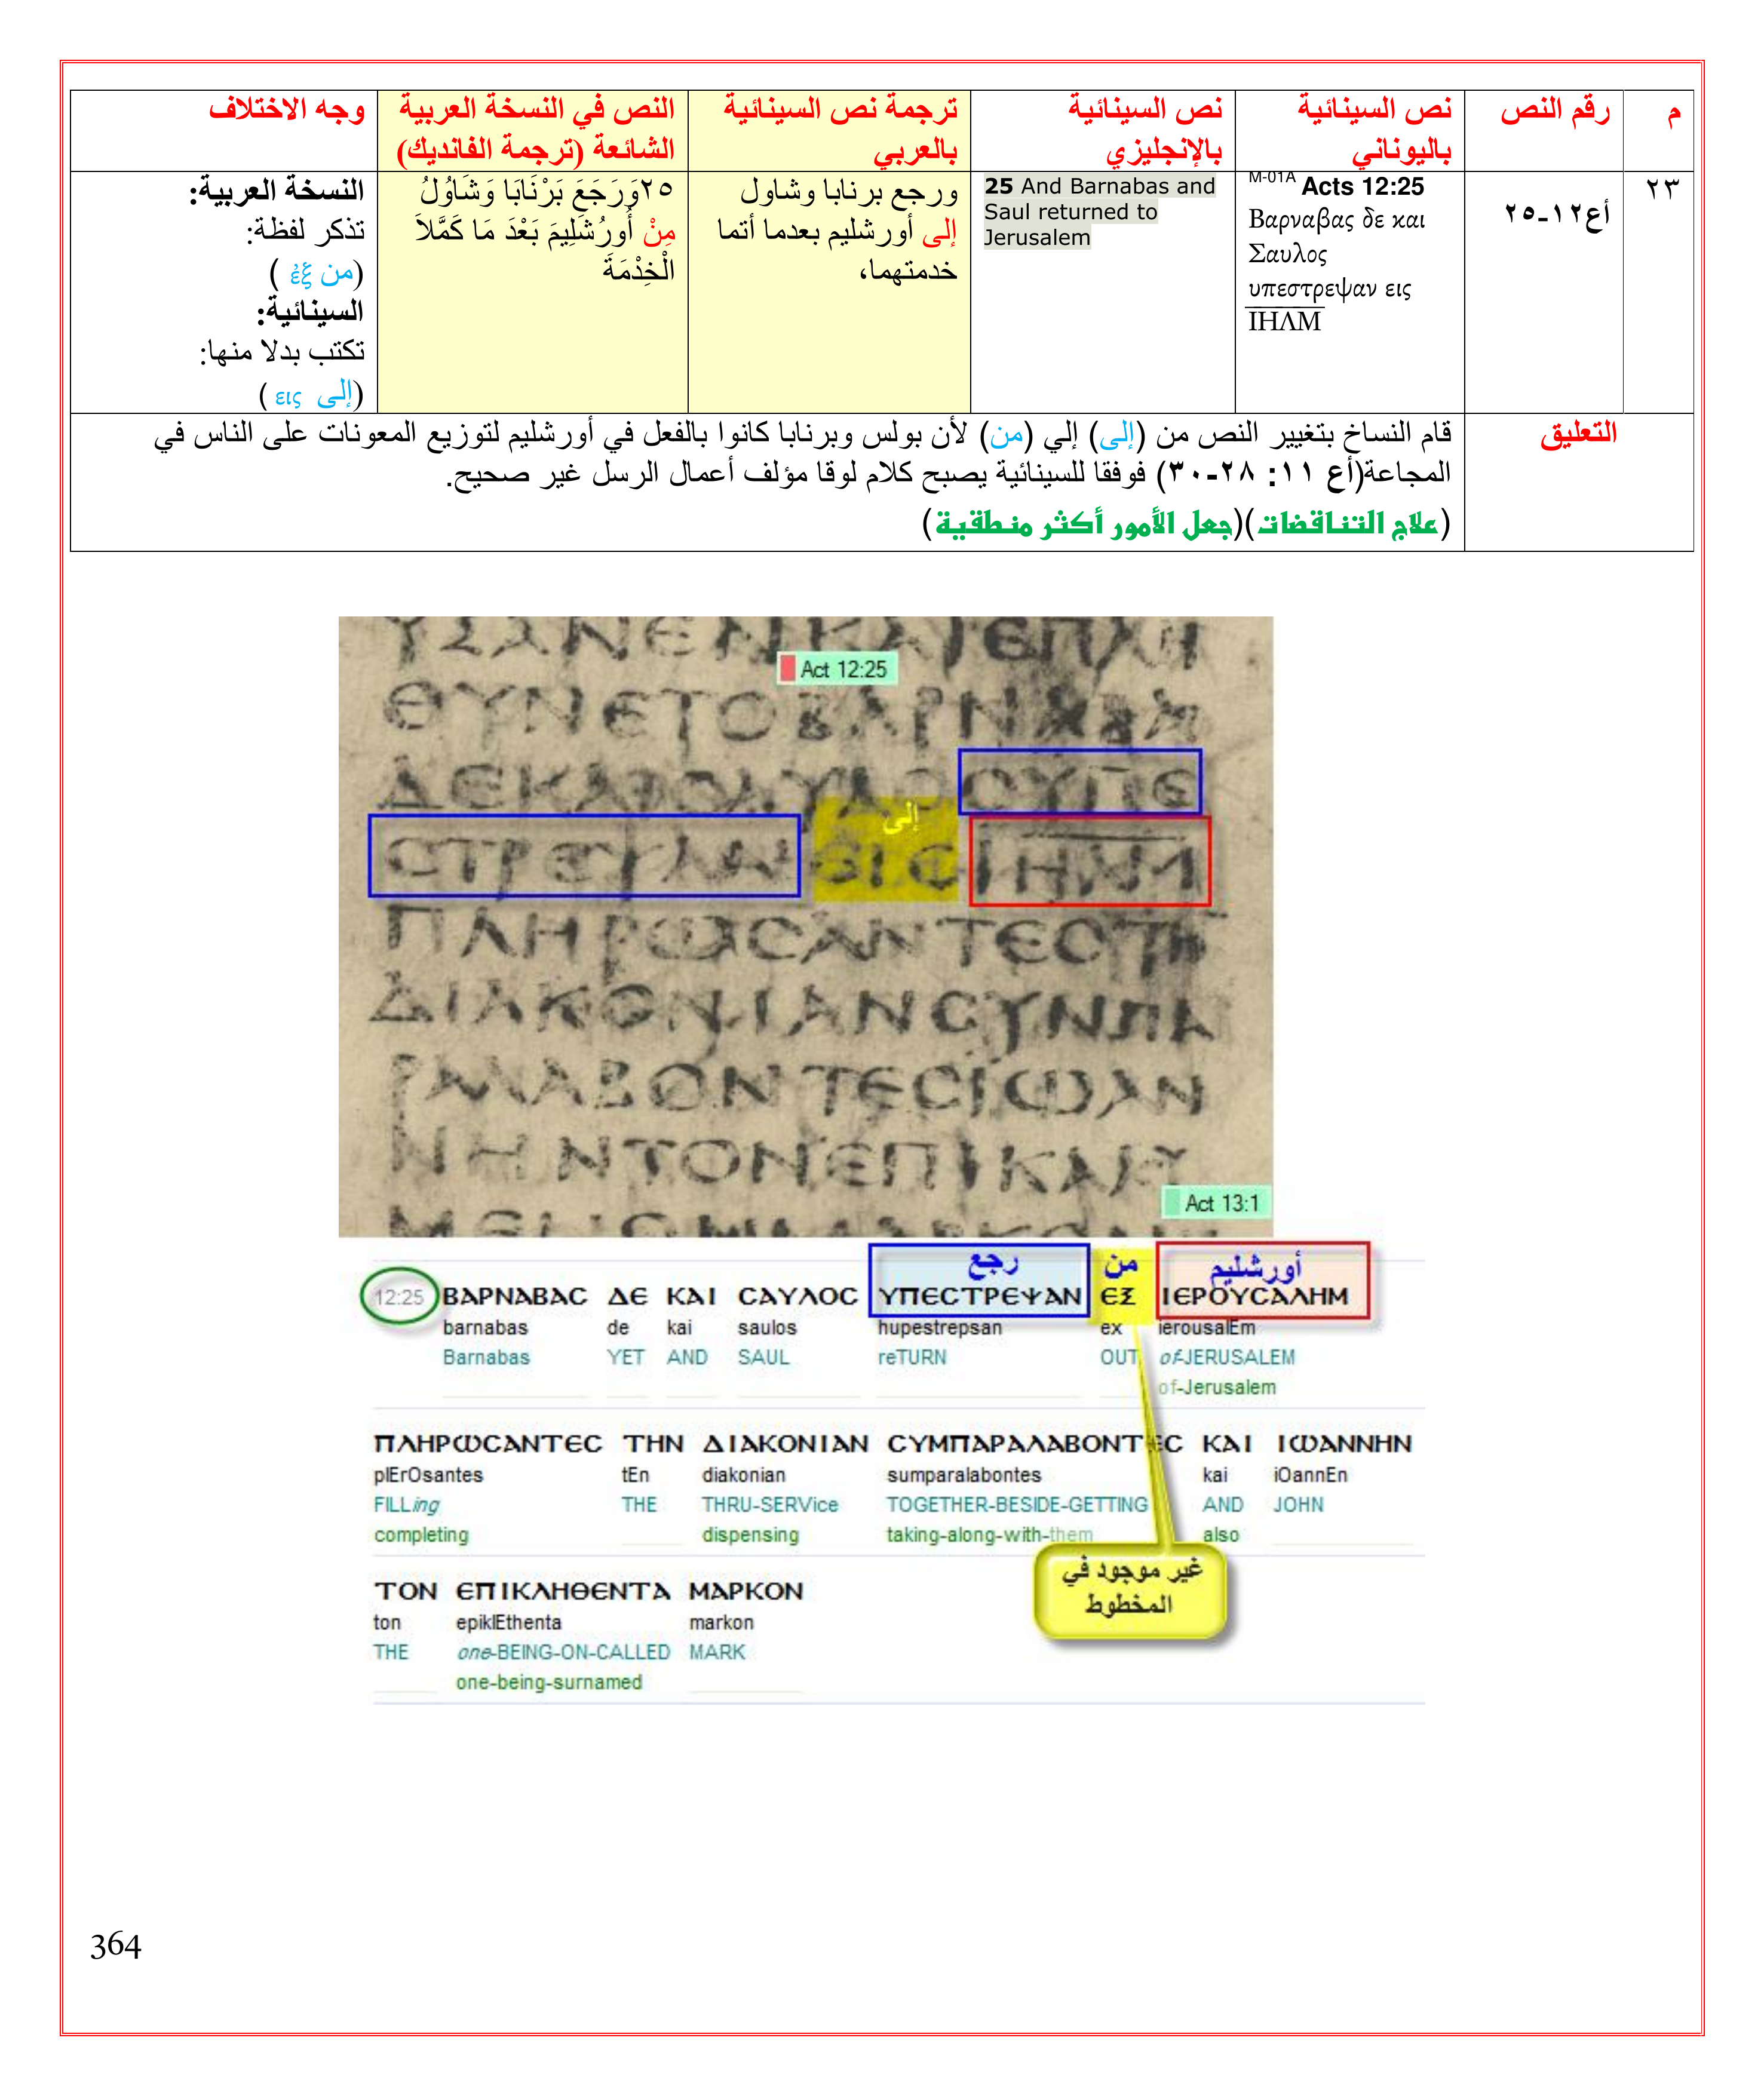 م
رقم النص
نص السينائية
باليوناني
نص السينائية
بالإنجليزي
ترجمة نص السينائية
بالعربي
النص في النسخة العربية
الشائعة (ترجمة الفانديك)
وجه الاختلاف
٢٣
أع١٢-٢٥
M-01A Acts 12:25
Βαρναβας δε και
Σαυλος
υπεστρεψαν εις
ΙΗΛΜ
25 And Barnabas and
Saul returned to
Jerusalem
ورجع برنابا وشاول
إلى أورشليم بعدما أتما
خدمتهما،
٢٥وَرَجَعَ بَرْنَابَا وَشَاوُلُ
مِنْ أُورُشَلِيمَ بَعْدَ مَا كَمَّلاَ
الْخِدْمَةَ
النسخة العربية:
تذكر لفظة:
(من ἐξ )
السينائية:
تكتب بدلا منها:
(إلى εις )
التعليق
قام النساخ بتغيير النص من (إلى) إلي (من) لأن بولس وبرنابا كانوا بالفعل في أورشليم لتوزيع المعونات على الناس في
المجاعة(أع ١١: ٢٨-٣٠) فوفقا للسينائية يصبح كلام لوقا مؤلف أعمال الرسل غير صحيح.
(علاج التناقضات)(جعل الأمور أكثر منطقية)
Act 12:25
ΘΥΝΕΤΟΒΑΡΝΑΒΑϹ
ΔΕΚΑΙϹΑΥΛΟϹΥΠΕ
إلى
ϹΤΡΕΨΑΝΕΙϹΙΗΛΜ
ΠΛΗΡΩϹΑΝΤΕϹΤΗ
ΔΙΑΚΟΝΙΑΝϹΥΝΠΑ
ΡΑΛΑΒΟΝΤΕϹΙΩΑΝ
ΝΗΝΤΟΝΕΠΙΚΑΛΥ
Act 13:1
رجع من أورشليم
12:25 ΒΑΡΝΑΒΑϹ ΔΕ ΚΑΙ ϹΑΥΛΟϹ ΥΠΕϹΤΡΕΨΑΝ ΕΞ ΙΕΡΟΥϹΑΛΗΜ
barnabas de kai saulos hupestrepsan ex ierousalEm
Barnabas YET AND SAUL reTURN OUT of-JERUSALEM
of-Jerusalem
ΠΛΗΡΩϹΑΝΤΕϹ ΤΗΝ ΔΙΑΚΟΝΙΑΝ ϹΥΜΠΑΡΑΛΑΒΟΝΤΕϹ ΚΑΙ ΙΩΑΝΝΗΝ
plErOsantes tEn diakonian sumparalabontes kai iOannEn
FILLing THE THRU-SERVice TOGETHER-BESIDE-GETTING AND JOHN
completing dispensing taking-along-with-them also
غير موجود في
المخطوط
ΤΟΝ ΕΠΙΚΛΗΘΕΝΤΑ ΜΑΡΚΟΝ
ton epiklEthenta markon
THE one-BEING-ON-CALLED MARK
one-being-surnamed
364